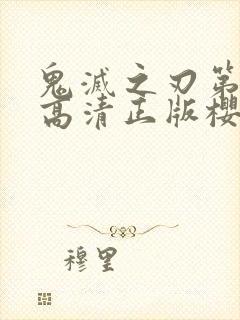 鬼滅之刃第
高清正版櫻
穆里